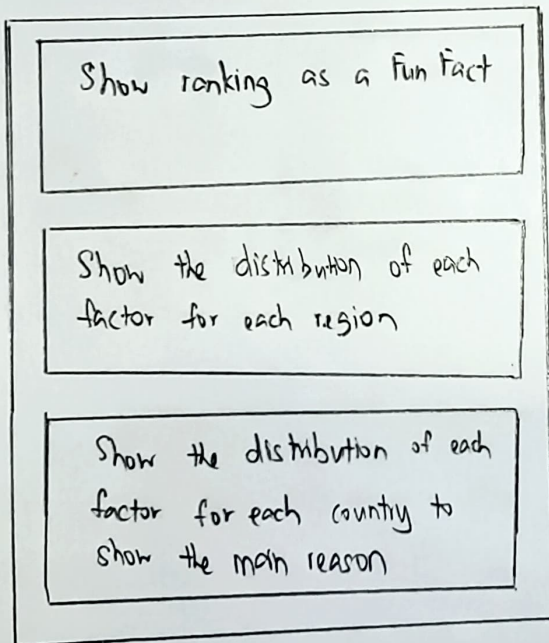 Show ranking as a Fun Fact
Show the distribution of each
factor for each region
Show the distribution of each
factor for each country to
show the main reason